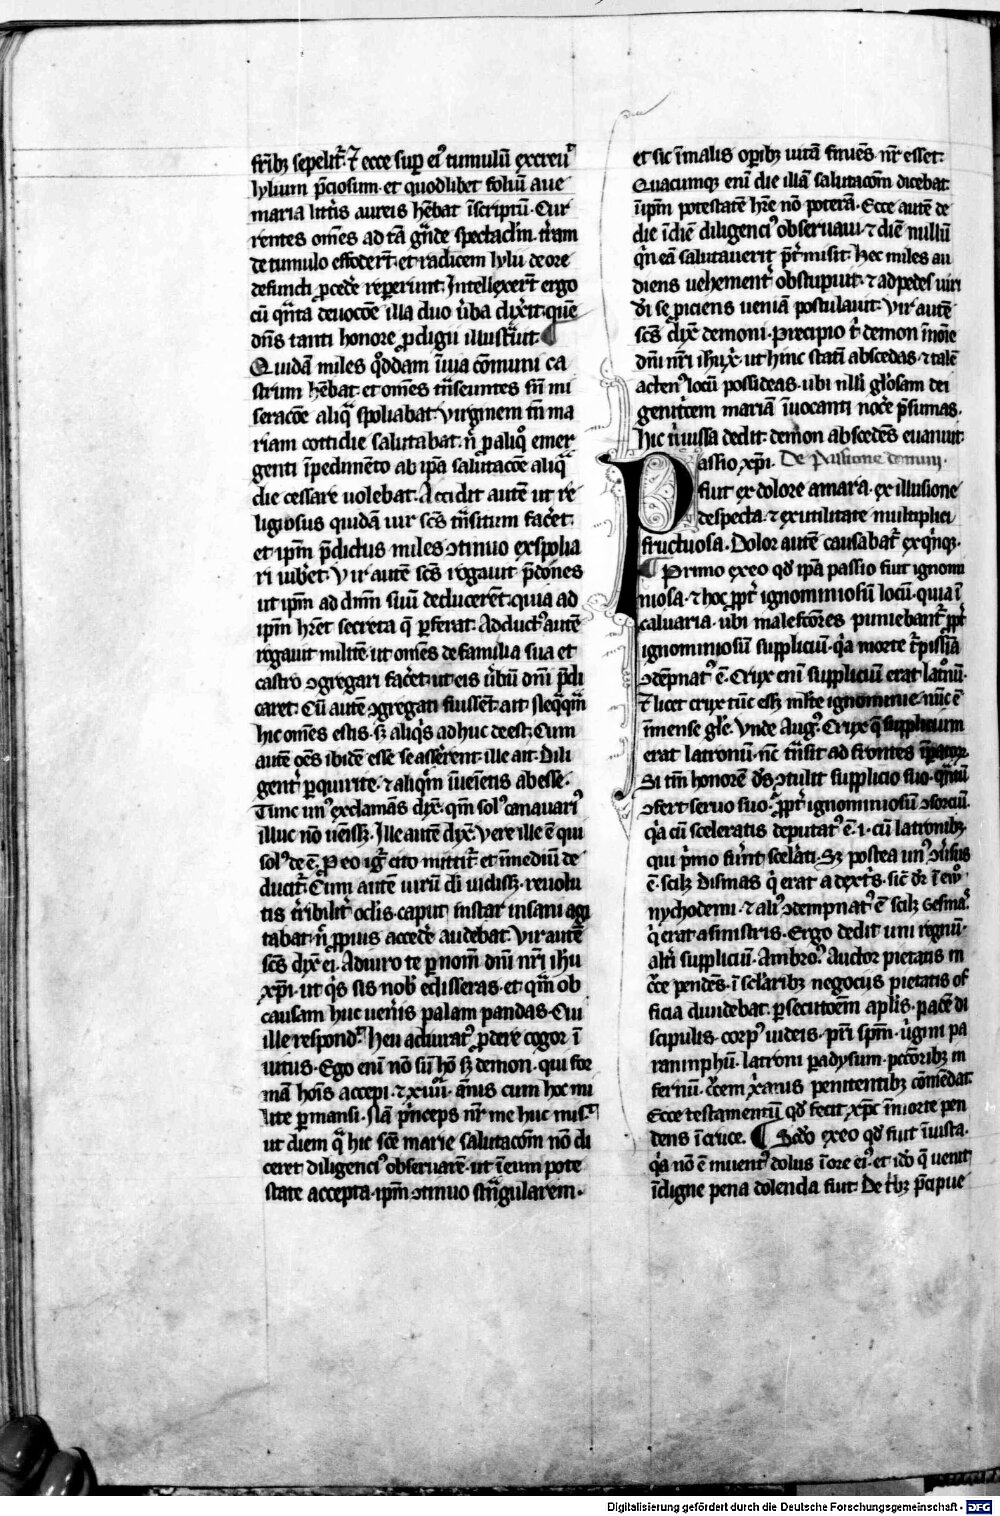 fr̄ibꝫ sepelit᷑. ⁊ ecce suꝑ eiꝰ tumulū excreuͥͭ
lylium p̄ciosum. et quodlibet foliū aue
maria litt̄is aureis hēbat īscriptū. Cur
rentes om̄es ad tā gͣnde spectacl̄m. t̄ram
de tumulo effoder̄t. et radicem lylii de ore
defuncti ꝓceder̄ reꝑeriunt. Intellexer̄t ergo
cū qͣnta deuocōe illa duo ūba dixit. quē
dn̄s tanti honore ꝓdigii illustͣuit.
Quidā miles qͦddam ī uia cōmuni ca
strum hēbat. et om̄es tn̄seuntes sn̄ mi
seracōe aliqͣ spoliabat. Virginem tn̄ ma
riam cottidie salutabat. n̄ ꝑ aliqͦ emer
genti īpedimēto ab ip̄a salutacōe aliqͣ
die cessare uolebat. Accidit autē ut re
ligiosus quidā uir sc̄s tn̄situm facer̄t.
et ip̄m p̄dictus miles ↄtinuo exspolia
ri iub̄et. Vir autē sc̄s rogauit p̄dones
ut ip̄m ad dn̄m suū deducerēt. quia ad
ip̄m hr̄et secreta q̄ ꝑferat. Adductꝰ autē
rogauit militē. ut om̄es de familia sua et
castro ↄgregari facer̄t. ut eis ūbū dn̄i p̄di
caret. Cū autē ↄgregati fuissēt. ait.
hic om̄es estis. sꝫ aliqͥs adhuc deest. Cum
autē om̄s ibidē esse se asser̄ent. ille ait. Dili
gent̄ ꝑquirite. ⁊ aliqͥm īueīetis abesse.
Tunc unꝰ exclamās dix̄. qm̄ solꝰ camariꝰ
illuc nō uēiss͛. Ille autē dix̄. Vere ille ē qui
solꝰ deē. ꝓ eo igr̄ cito mittit᷑. et ī mediū de
ducit᷑. Cum autē uirū di uidiss͛. reuolu
tis tribilit̄ oc̄lis. caput instar insani agi
tabat. n̄ ꝓpius acceder̄ audebat. Vir autē
sc̄s dix̄ ei. Adiuro te ꝑ nom̄ dn̄i nr̄i ih̄u
xp̄i. ut qͥs sis nob̄ edisseras. et qͣm ob
causam huc uen̄is palam pandas. Cui
ille respondͭ. heu adiuratꝰ ꝓdere cogor ī
uitus. Ego eni nō sū hō sꝫ demon. qui for
mā hoīs accepi. ⁊ xiiii. annis cum hoc mi
lite ꝑmansi. Nā p̄nceps nr̄ me huc misͭ.
ut diem qͣ hic sce marie salutacōm nō di
ceret diligenciꝰ obseruarē. ut ī eum pote
state accepta. ip̄m ↄtinuo stͣngularem.
et sic ī malis oꝑibꝫ uitā finiēs nr̄ esset.
Quacumqꝫ eni die illā salutacōm dicebat.
ī ip̄m potestatē hr̄e nō poterā. Ecce autē de
die ī diē diligenciꝰ obseruaui. ⁊ diē nullū
qͥn eā salutauerit p̄t̄misit. Hec miles au
diens uehement̄ obstupuit. ⁊ ad pedes uiri
di se ꝓiciens ueniā postulauit. Vir autē
sc̄s dix̄ demoni. Precipio t̄ demon ī noīe
dn̄i nr̄i ih̄u x̄. ut hinc statī abscedas. ⁊ talē
actenꝰ locū possideas. ubi nll̄i gl̄osam dei
genitͥcem mariā īuocanti nocer̄ p̄sumas.
Hic n̄ iussa dedit. demon abscedēs euanuit.
Passio xp̄i. De Passione domini.
fuit ex dolore amara. ex illusione
despecta. ⁊ ex utilitate multiplici
fructuosa. Dolor autē causabat᷑ ex qͥnqꝫ.
Primo ex eo qd̄ ip̄a passio fuit ignomi
niosa. ⁊ hoc ꝓpt̄ ignominiosū locū. quia ī
caluaria. ubi malefcōres puniebant᷑ ꝓpt̄
ignominiosū suppliciū. qͥa morte t̄pissīa
ↄdēpnatꝰ ē. Crux eni suppliciū erat lat͛onū.
⁊ licet crux tūc ess͛ mīste ignominie. nūc ē
īmense gl̄e. Vnde Augꝰ. Crux q̄ supplicium
erat latronū. nc̄ tn̄sit ad frontes īpatorꝫ.
Si tm̄ honorē ds̄ ↄtulit supplicio suo. qͣntū
ↄfert seruo suo. ꝓpt̄ ignominiosū ↄsorciū.
qͥa cū sceleratis deputatꝰ ē. i. cū latronibꝫ.
qui pͥmo fuer̄t scelāti. Sꝫ postea unꝰ ↄūsus
ē. scilꝫ Dismas qͥ erat a dext̄s. sic̄ dr̄ ī ew̄
nychodemi. ⁊ aliꝰ ↄdempnatꝰ ē scilꝫ Gesmaꝰ.
qͥ erat a sinistris. Ergo dedit uni regnū.
alt̄i suppliciū. Ambroꝰ. Auctor pietatis in
cͨce pendēs. ī scl̄aribꝫ negociis pietatis of
ficia diuidebat. ꝑsecutōem apl̄is. pacē di
scipulis. corpꝰ iudeis. pr̄i spm̄. ūgini pa
raninphū. latroni paradysum. pctōribꝫ in
fernū. cͨem x̄anis penitentibꝫ cōmēdat.
Ecce testamentū qd̄ fecit xp̄c ī morte pen
dens ī cruce. ¶ Scd̄o ex eo qd̄ fuit īiusta.
qͥa nō ē inuentꝰ dolus ī ore eiꝰ. et id̄o q̄ uenit
īdigne pena dolenda fuit. De t̄bꝫ p̄cipue